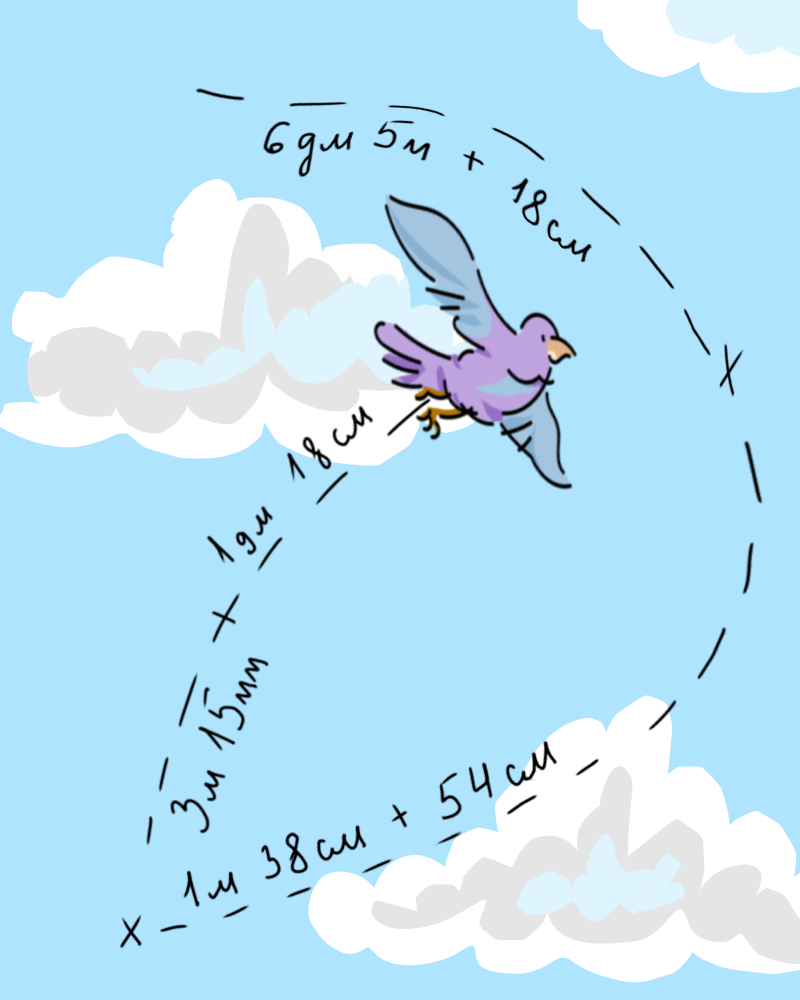 6 дм 5 м + 18 см
1 дм 18 см
3 м 15 мм
1 м 38 см + 54 см